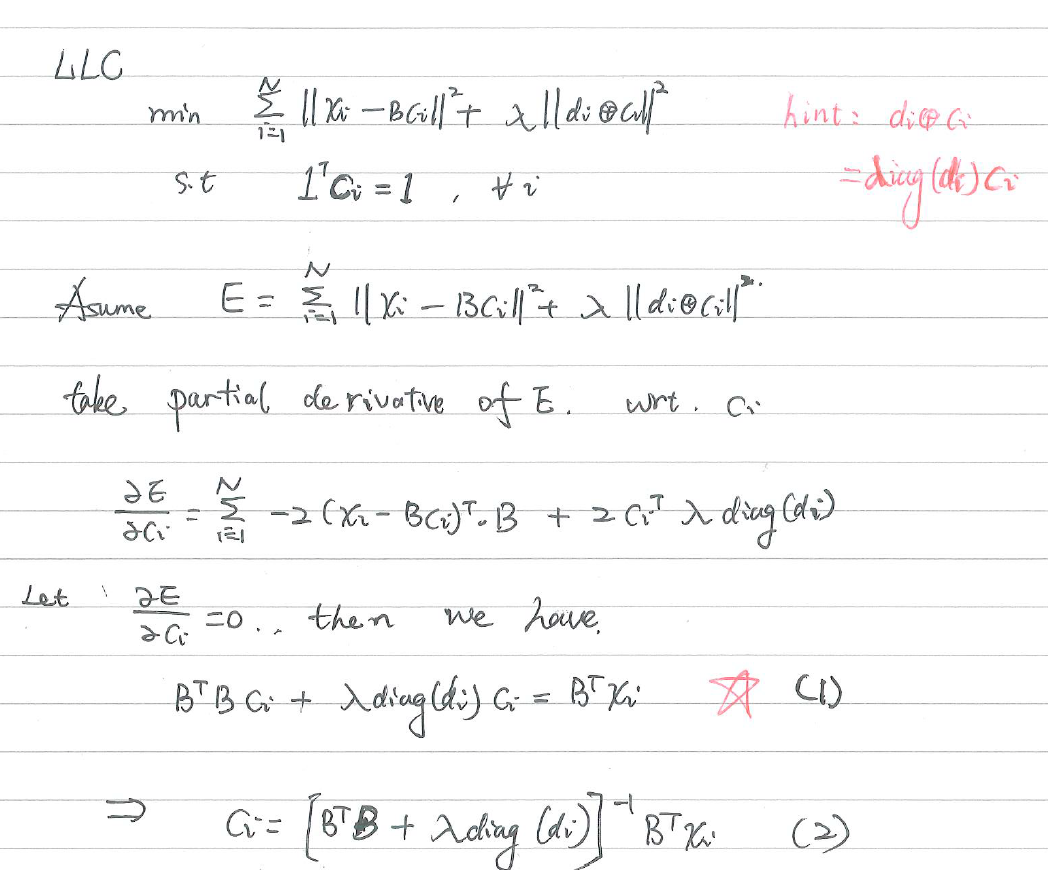 LLC
min Σ_{i=1}^{N} ||xi - Bci||² + λ||di⊕ci||² hint: di⊕ci
s.t 1ᵀci = 1 , ∀i =diag(di)ci
Asume E = Σ_{i=1}^{N} ||xi - Bci||² + λ||di⊕ci||².
take partial derivative of E. wrt. ci
∂E/∂ci = Σ_{i=1}^{N} -2(xi - Bci)ᵀ·B + 2ciᵀ λ diag(di)
Let ∂E/∂ci =0.. then we have,
BᵀBci + λdiag(di)ci = Bᵀxi ☆ (1)
⇒ ci = [BᵀB + λdiag(di)]⁻¹ Bᵀxi (2)